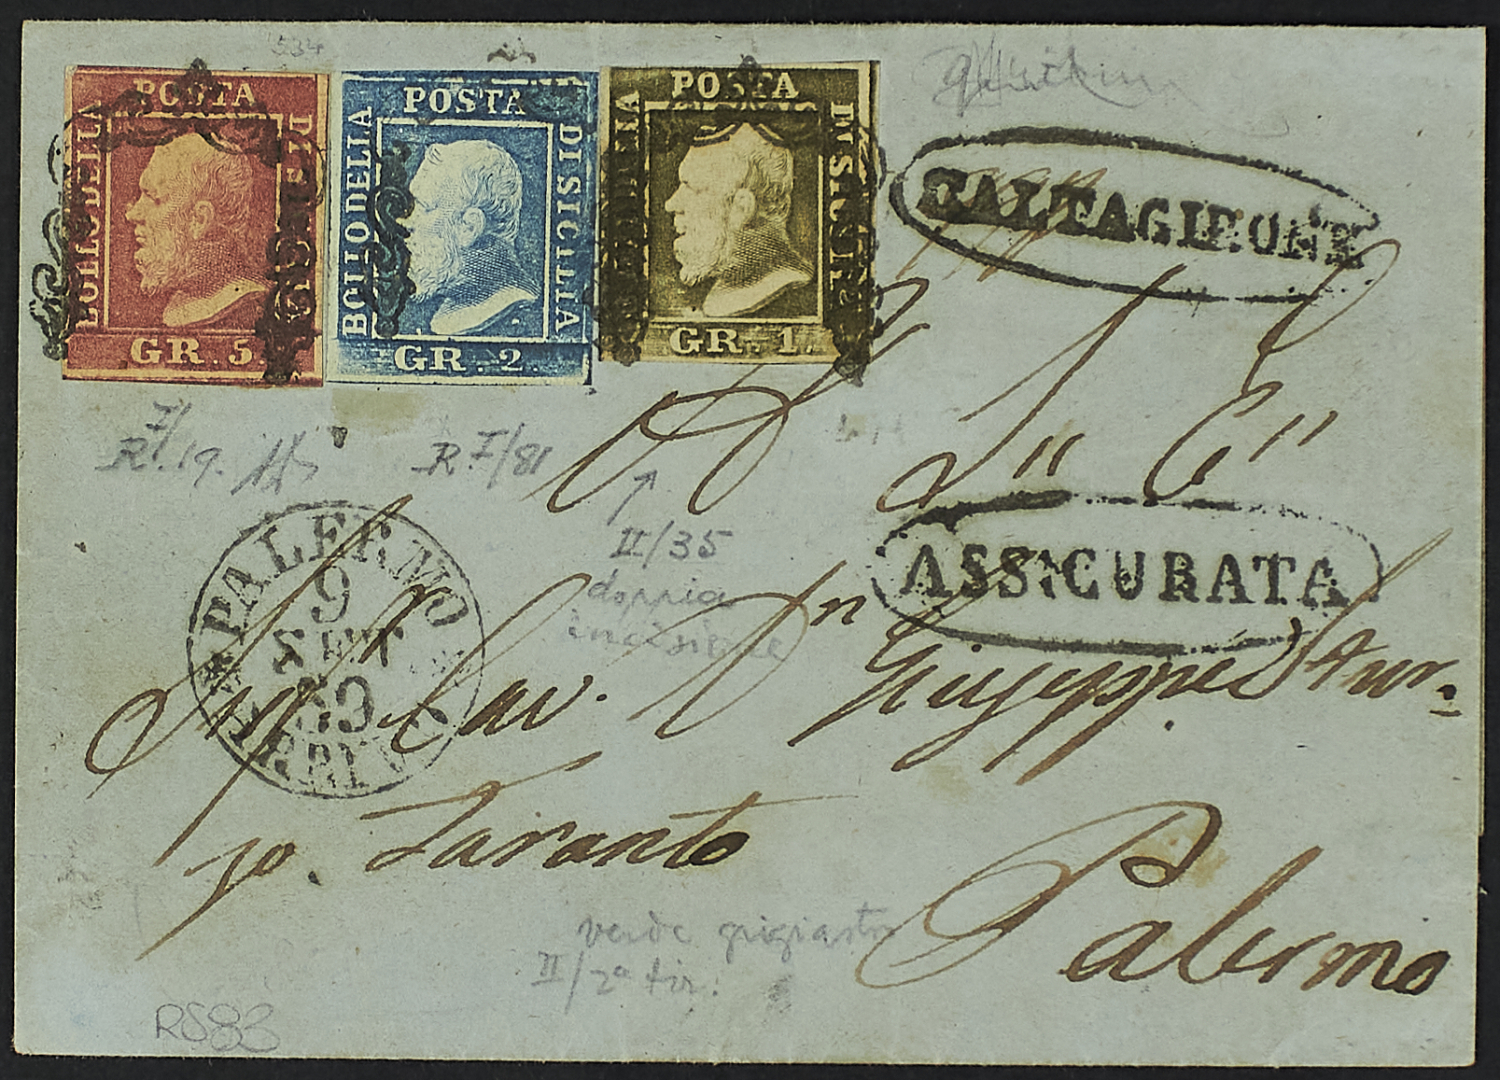 534
POSTA
BOLLO DELLA
DI SICILIA
GR. 5.
POSTA
BOLLO DELLA
DI SICILIA
GR. 2.
POSTA
BOLLO DELLA
DI SICILIA
GR. 1.
CALTAGIRONE
A S" E"
R. I/19.
R. I/81
II/35
doppia
incisione
ASSICURATA
PALERMO
9
SET
59
ARRIVO
Cav. Dn Giuseppe
Taranto
Palermo
verde grigiastro
II/2a tir.
RS83